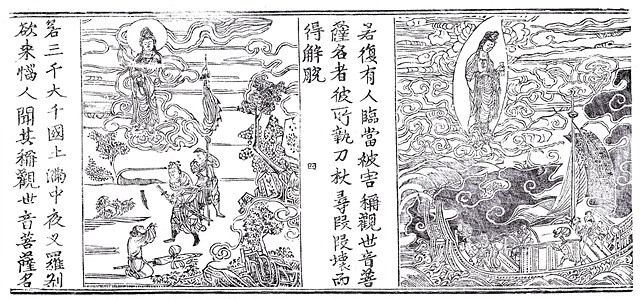 若復有人臨當被害稱觀世音菩
薩名者彼所執刀杖尋段段壞而
得解脫
四
若三千大千國土滿中夜叉羅剎
欲来惱人聞其稱觀世音菩薩名